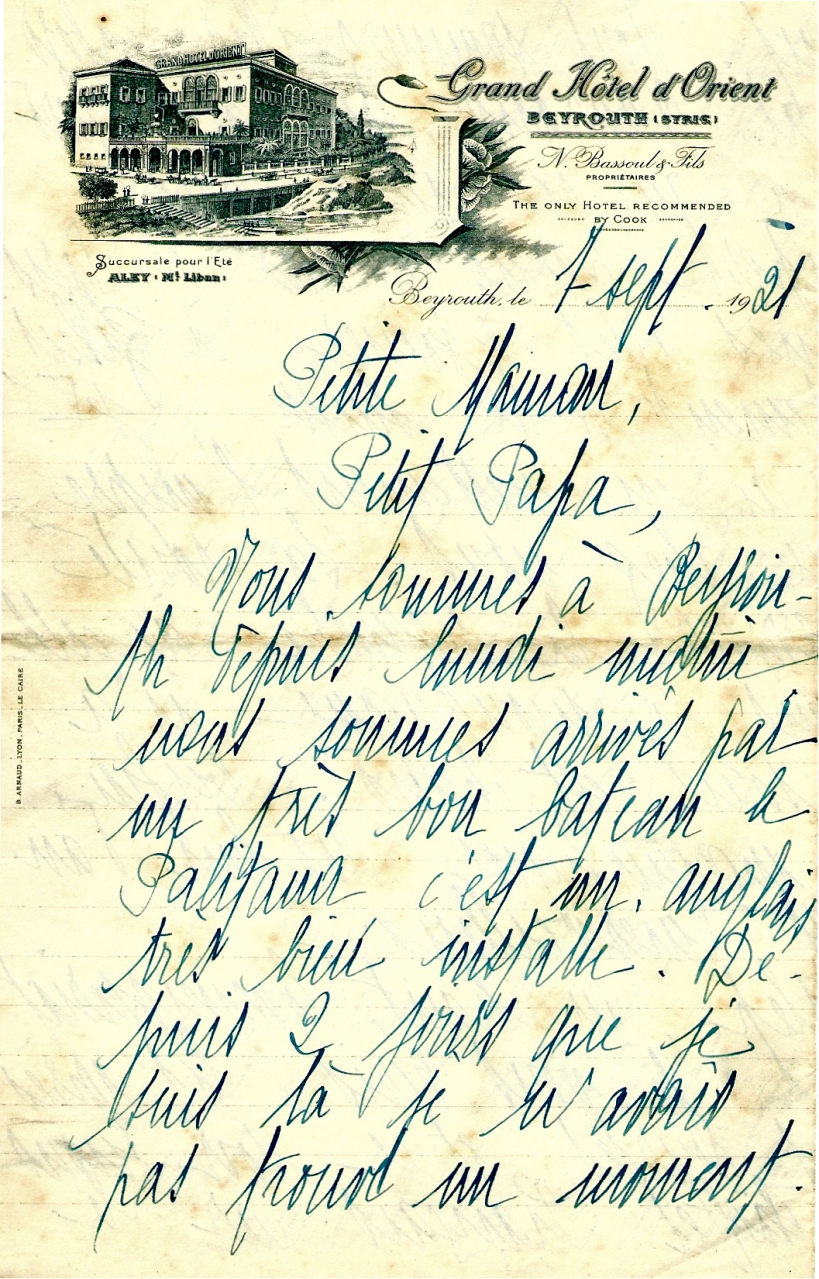 GRAND HOTEL D'ORIENT
Grand Hôtel d'Orient
BEYROUTH (SYRIE)
N. Bassoul & Fils
PROPRIÉTAIRES
THE ONLY HOTEL RECOMMENDED
BY COOK
Succursale pour l'Eté
ALEY (Mt Liban)
Beyrouth, le 7 sept. 1921
Petite Maman,
Petit Papa,
Nous sommes à Beyrou-
th depuis lundi matin
nous sommes arrivés par
un très bon bateau le
Palitana c'est un anglais
très bien installé. De-
puis 2 jours que je
suis là je n'avais
pas trouvé un moment.
B. ARNAUD. LYON - PARIS - LE CAIRE